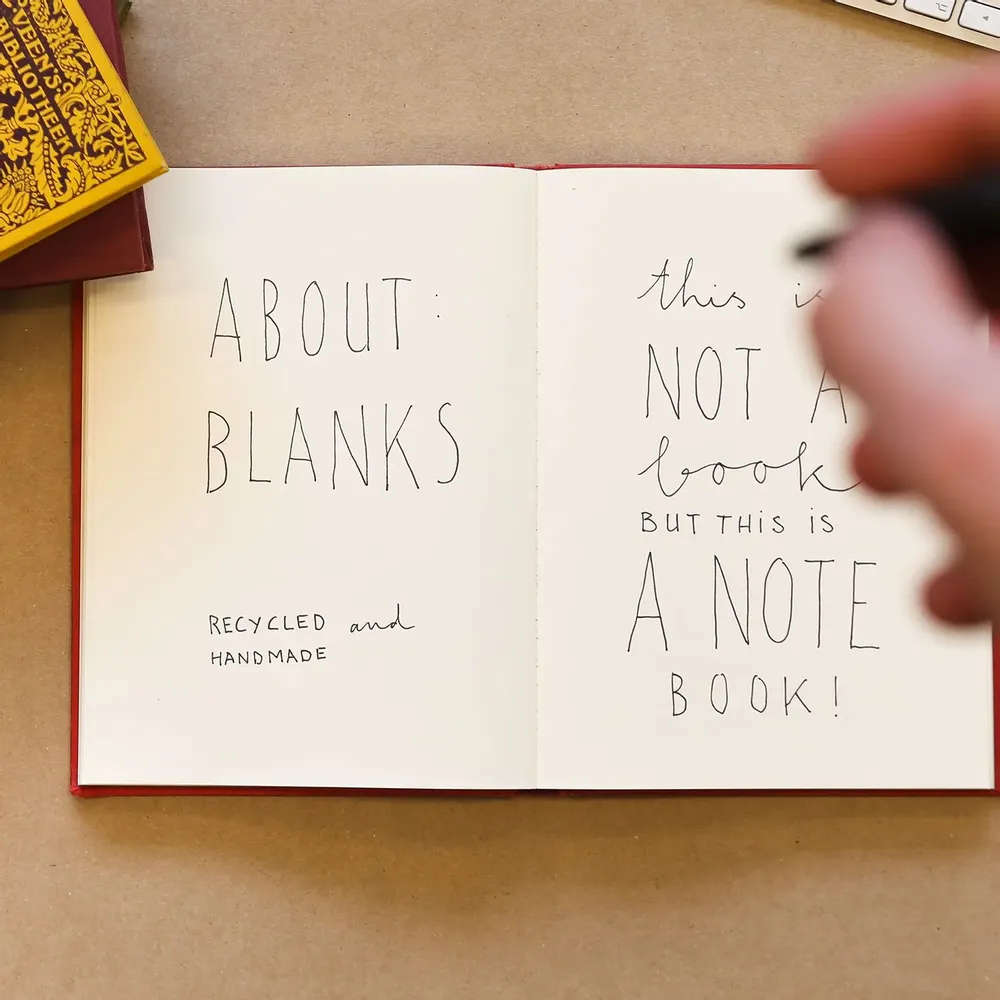 VEEN'S
BIBLIOTHEEK
ABOUT:
BLANKS
RECYCLED and
HANDMADE
this is
NOT A
book
BUT THIS IS
A NOTE
BOOK!